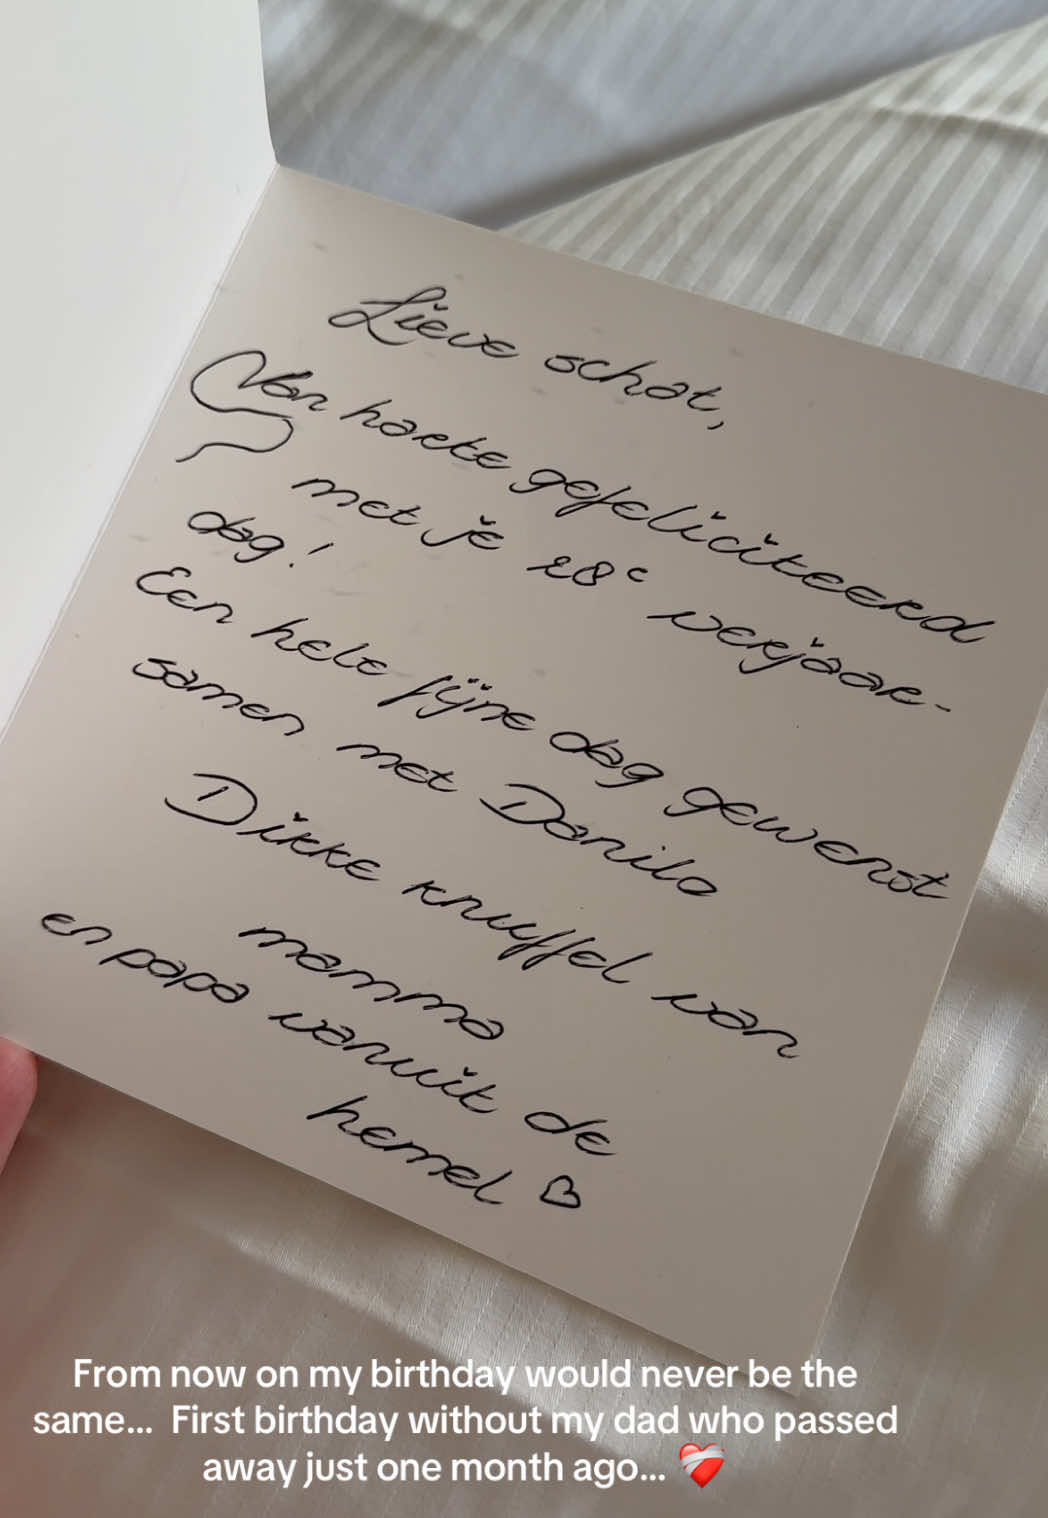 Lieve schat,
Van harte gefeliciteerd
met je 28e verjaar-
dag!
Een hele fijne dag gewenst
samen met Danilo
Dikke knuffel van
mamma
en papa vanuit de
hemel ♡
From now on my birthday would never be the
same... First birthday without my dad who passed
away just one month ago... ❤️‍🩹